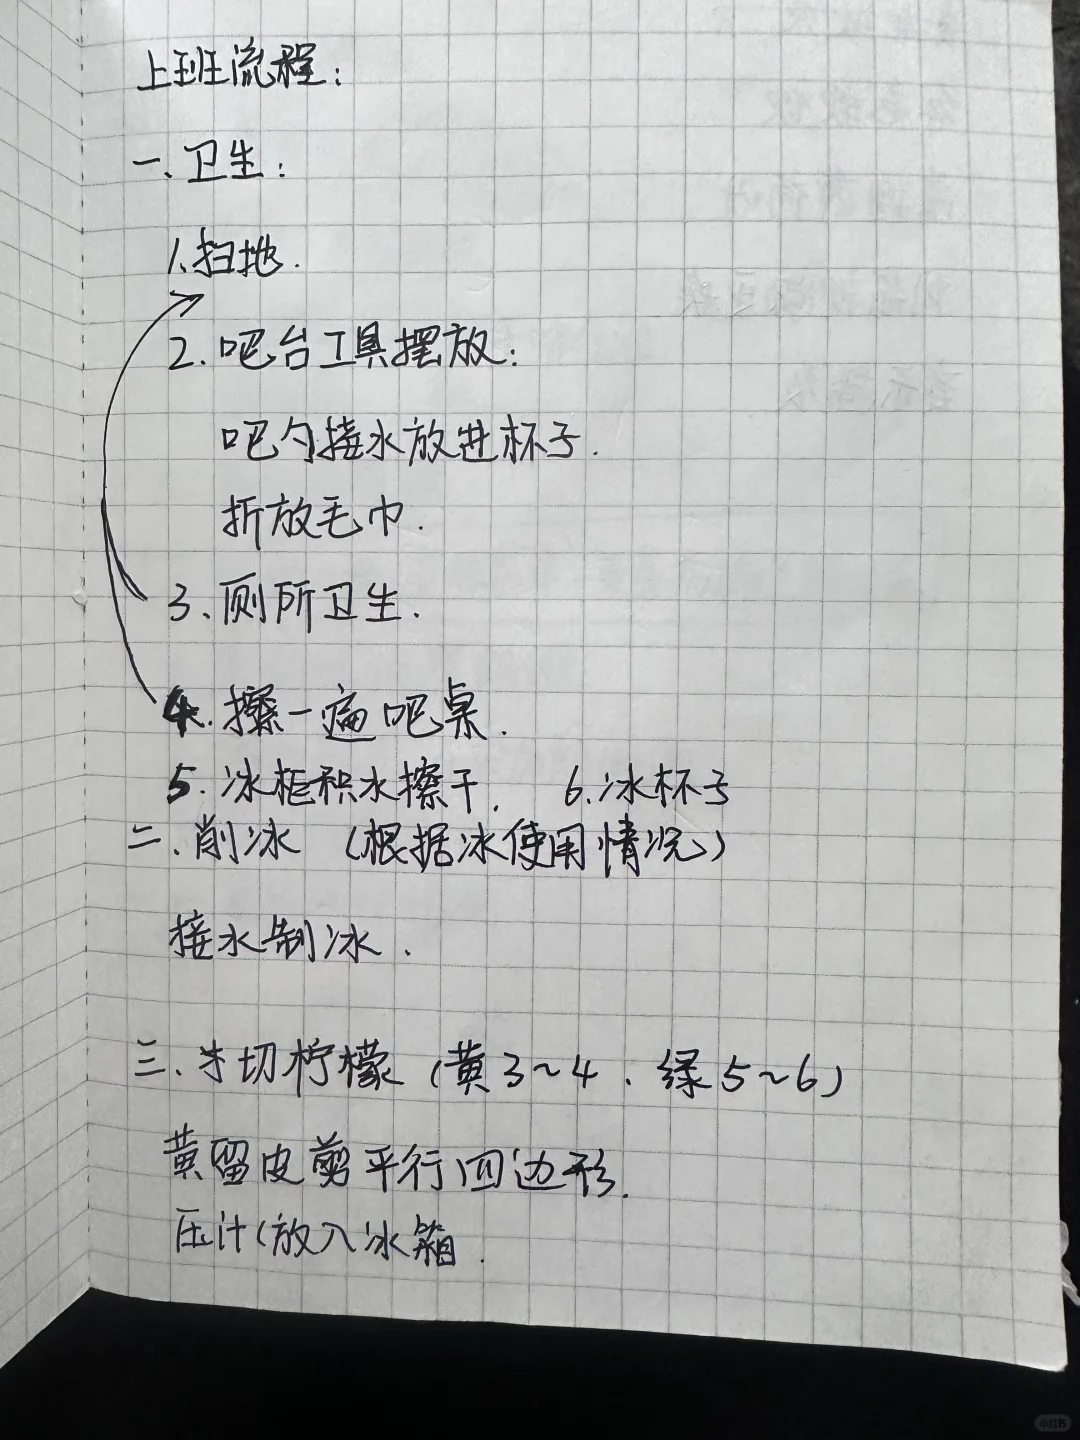 上班流程：
一、卫生：
1、扫地．
2．吧台工具摆放：
吧勺接水放进杯子．
折放毛巾．
3、厕所卫生．
4．擦一遍吧桌．
5．冰柜积水擦干．　6．冰杯子
二、削冰 （根据冰使用情况）
接水制冰．
三、切柠檬（黄3~4．绿5~6）
黄留皮剪平行四边形．
压汁（放入冰箱．
小红书